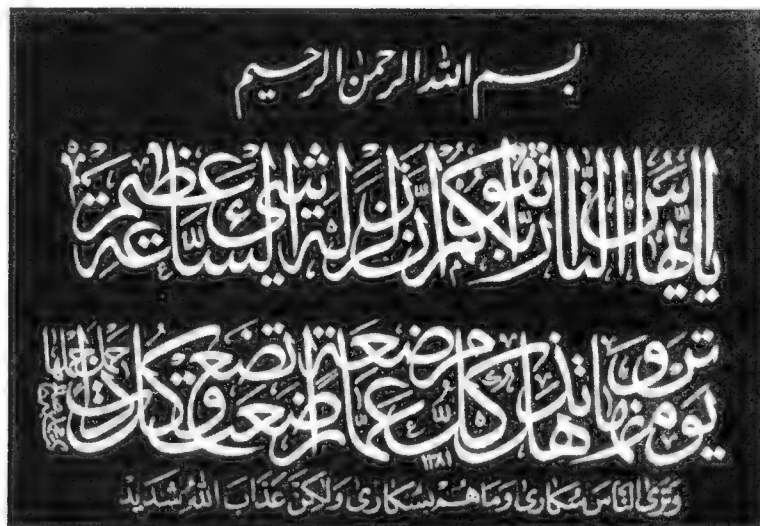 بسم الله الرحمن الرحيم
يا ايها الناس اتقوا ربكم ان زلزلة الساعة شئ عظيم
يوم ترونها تذهل كل مرضعة عما ارضعت وتضع كل ذات حمل حملها
١٣٨١
وترى الناس سكارى وما هم بسكارى ولكن عذاب الله شديد